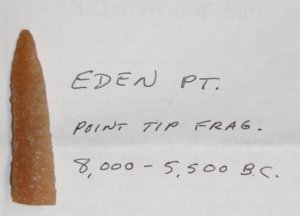 EDEN PT.
POINT TIP FRAG.
8,000 - 5,500 B.C.